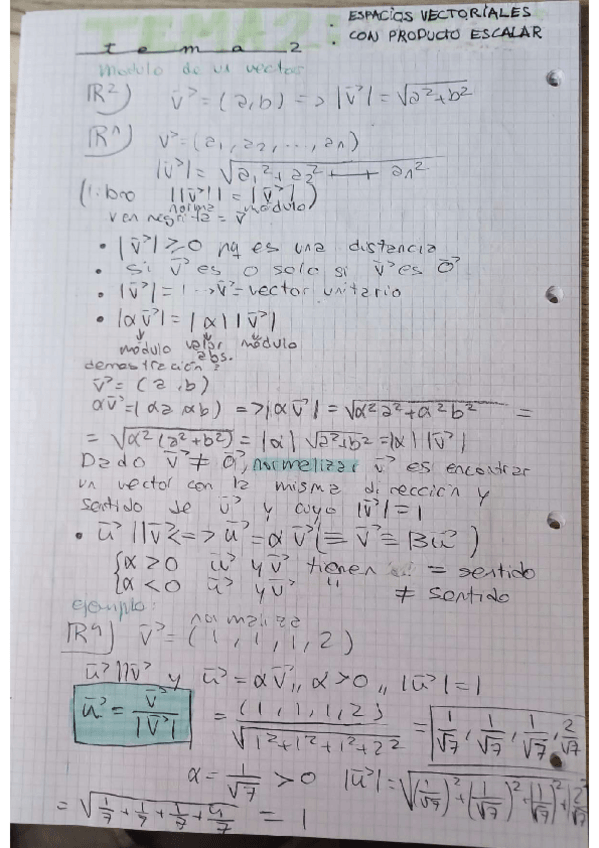 TEMA 2:
ESPACIOS VECTORIALES
tema 2 : CON PRODUCTO ESCALAR
módulo de un vector
ℝ²) v⃗ = (a,b) => |v⃗| = √(a²+b²)
ℝⁿ) v⃗ = (a₁, a₂, ..., aₙ)
|v⃗| = √(a₁² + a₂² + ... + aₙ²)
(libro ||v⃗|| = |v⃗|)
norma módulo
v en negrita = v⃗
• |v⃗| ≥ 0 pq es una distancia
• si v⃗ es 0 solo si v⃗ es 0⃗
• |v⃗| = 1 --> v⃗ = vector unitario
• |αv⃗| = |α| |v⃗|
módulo valor módulo
abs.
demostración:
v⃗ = (a,b)
αv⃗ = (αa, αb) => |αv⃗| = √(α²a² + α²b²) =
= √(α²(a²+b²)) = |α| √(a²+b²) = |α| |v⃗|
Dado v⃗ ≠ 0⃗, normalizar v⃗ es encontrar
un vector con la misma dirección y
sentido de v⃗ y cuyo |v⃗| = 1
• u⃗ || v⃗ <=> u⃗ = αv⃗ (≡ v⃗ = βu⃗)
{α > 0 u⃗ y v⃗ tienen = sentido
{α < 0 u⃗ y v⃗ " ≠ sentido
ejemplo:
normaliza
ℝ⁴) v⃗ = (1, 1, 1, 2)
u⃗ || v⃗ y u⃗ = αv⃗ ,, α > 0 ,, |u⃗| = 1
u⃗ = v⃗/|v⃗| = (1, 1, 1, 2)/√(1²+1²+1²+2²) = (1/√7, 1/√7, 1/√7, 2/√7
α = 1/√7 > 0 |u⃗| = √((1/√7)² + (1/√7)² + (1/√7)² + (2
= √(1/7 + 1/7 + 1/7 + 4/7) = 1